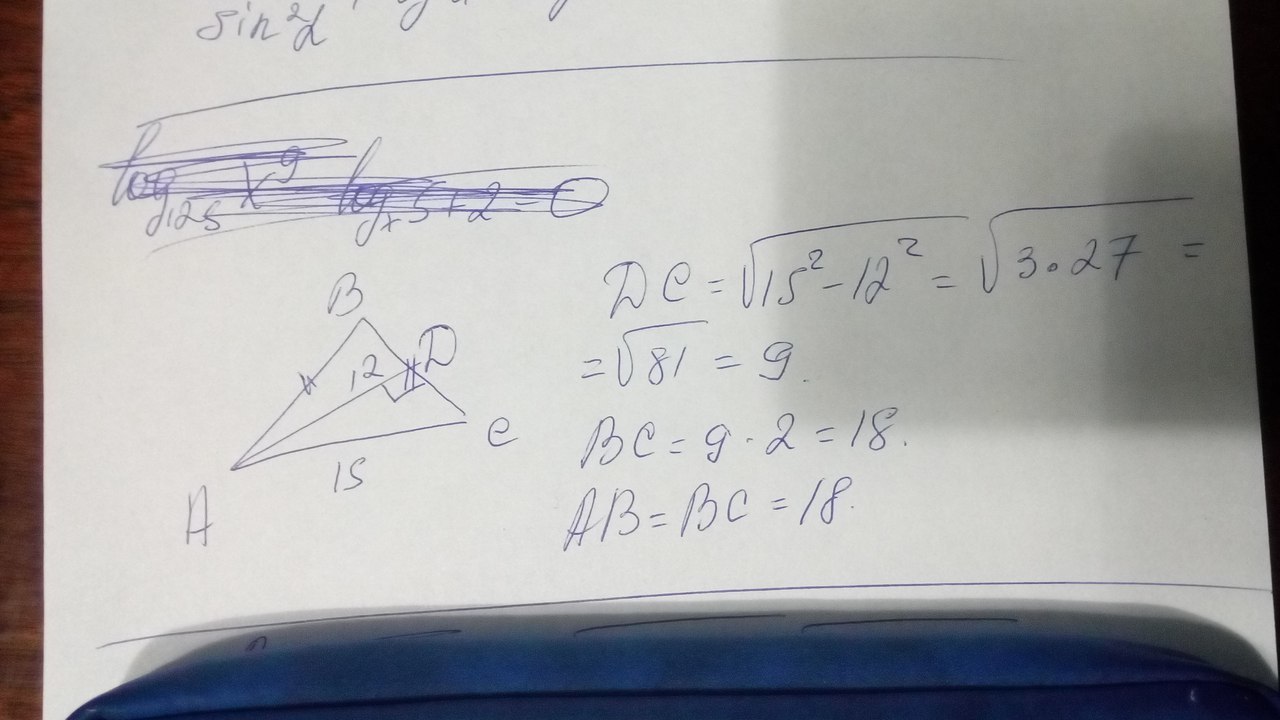 sin²α
log₁₂₅ x⁹ logₓ 5 + 2 = 0
B
12
D
C
15
A
DC = √15² - 12² = √3 · 27 =
= √81 = 9.
BC = 9 · 2 = 18.
AB = BC = 18.